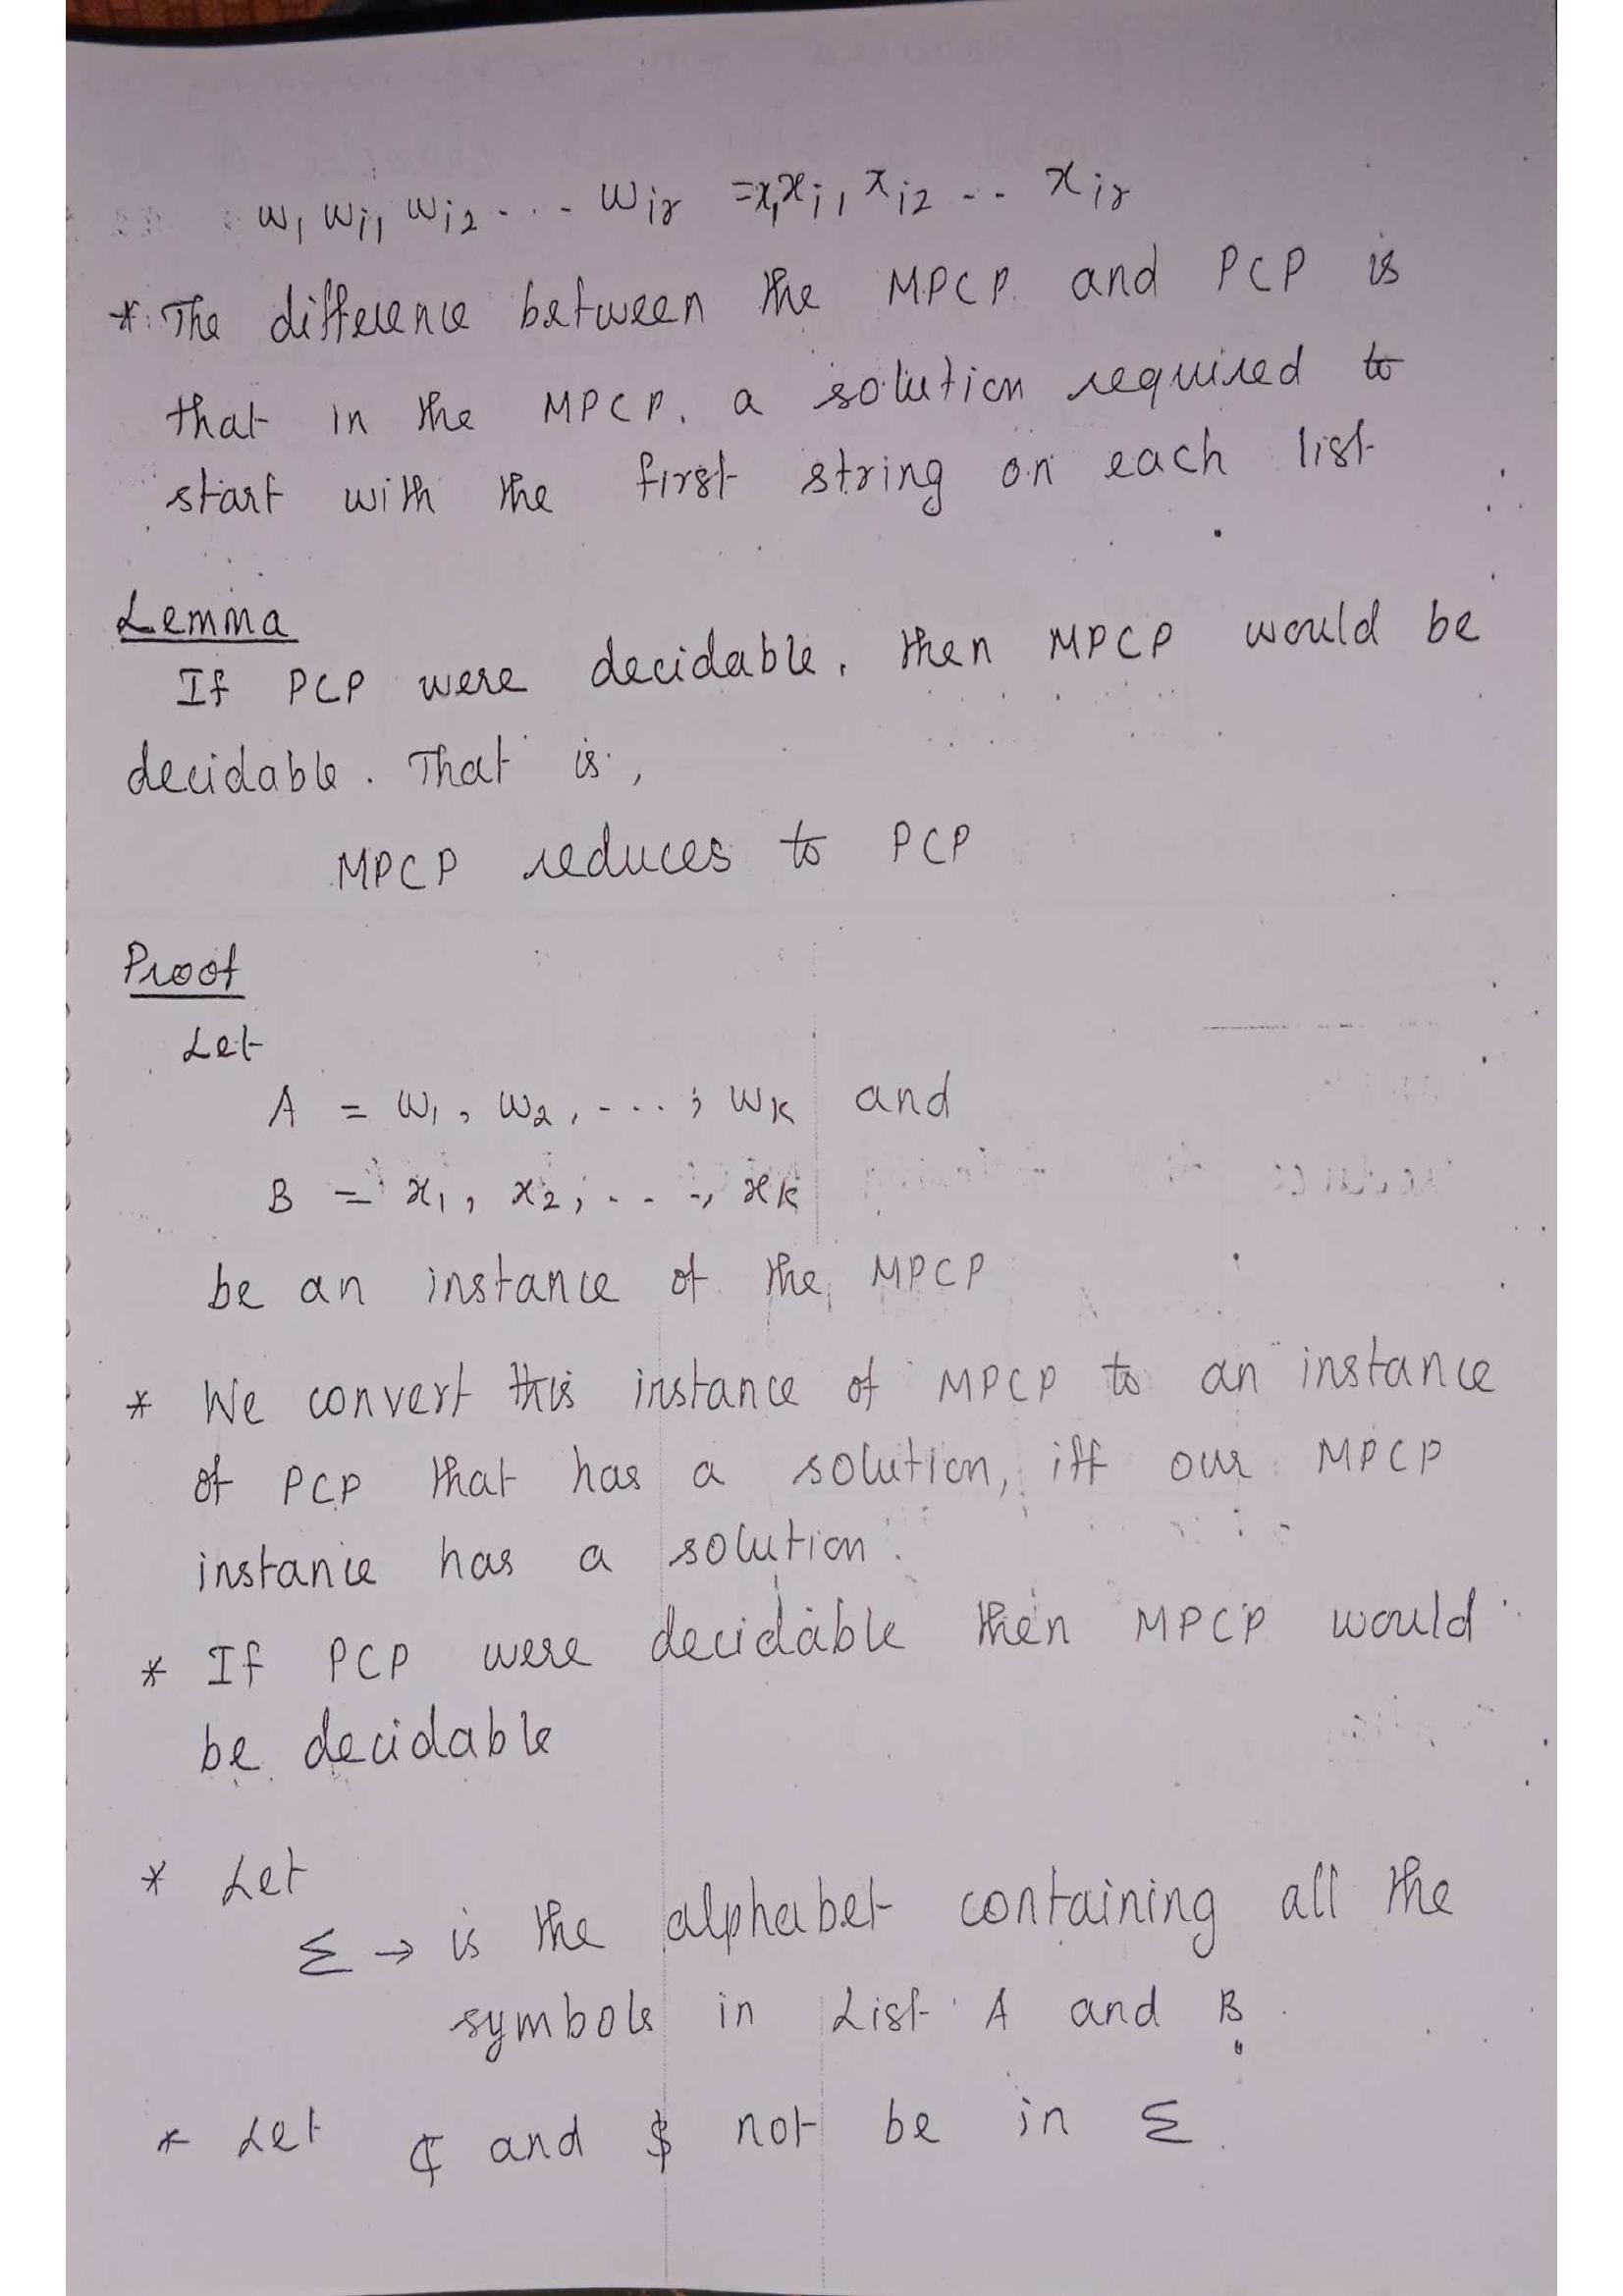 w₁ wi₁ wi₂ - .. - wir = x₁ xi₁ xi₂ -- xir
* The difference between the MPCP and PCP is
that in the MPCP, a solution required to
start with the first string on each list
Lemma
If PCP were decidable, then MPCP would be
decidable. That is,
MPCP reduces to PCP
Proof
Let
A = w₁, w₂, - ... , wk and
B = x₁, x₂, - .. -, xk
be an instance of the MPCP
* We convert this instance of MPCP to an instance
of PCP that has a solution, iff our MPCP
instance has a solution.
* If PCP were decidable then MPCP would
be decidable
* Let
Σ → is the alphabet containing all the
symbols in List A and B.
* Let ¢ and $ not be in Σ.